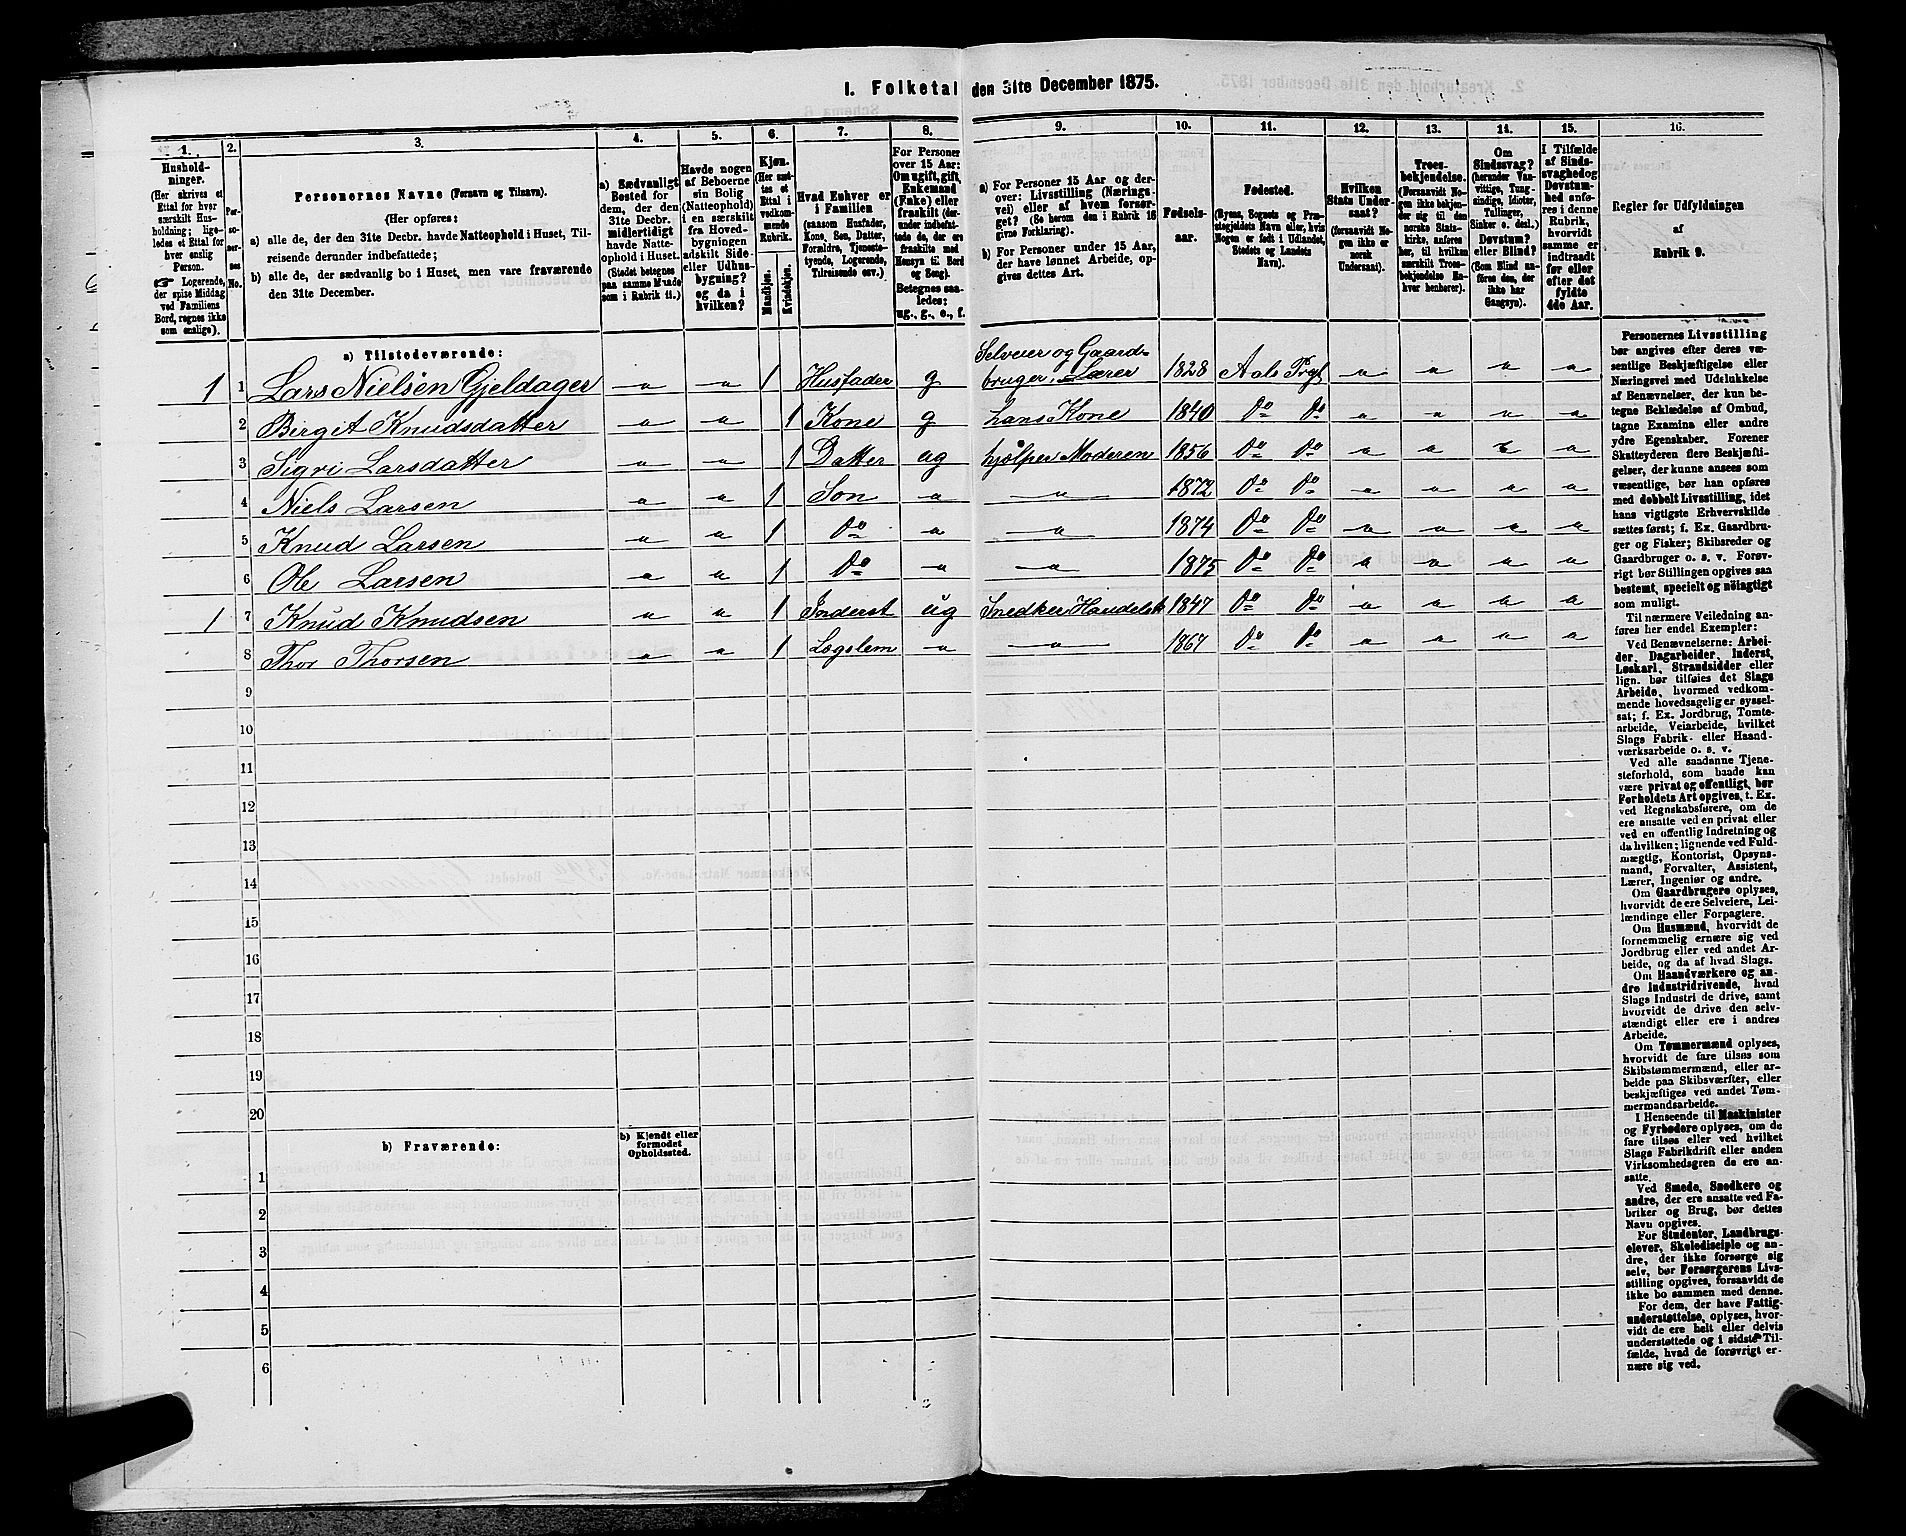 I. Folketal den 31te December 1875.
1.
2.
3.
4.
5.
6.
7.
8.
9.
10.
11.
12.
13.
14.
15.
16.
Husholdninger.
(Her skrives et
Ettal for hver
særskilt Husholdning;
ligeledes
et Ettal for
hver enslig
Person.
☛ Logerende,
der spise Middag
ved Familiens
Bord, regnes ikke
som enslige).
Personernes No.
Personernes Navne (Fornavn og Tilnavn).
(Her opføres:
a) alle de, der den 31te Decbr. havde Natteophold i Huset, Tilreisende
derunder indbefattede;
b) alle de, der sædvanlig bo i Huset, men vare fraværende
den 31te December.
a) Sædvanligt
Bosted for
dem, der den
31te Decbr.
midlertidigt
havde Natteophold
i Huset.
(Stedet betegnes
paa samme Maade
som i Rubrik 11.)
Havde nogen
af Beboerne
sin Bolig
(Natteophold)
i en særskilt
fra Hovedbygningen
adskilt Side-
eller Udhusbygning?
og da i
hvilken?
Kjøn.
(Her sættes
et
Ettal i
vedkommende
Rubrik.
Mandkjøn.
Kvindekjøn.
Hvad Enhver er
i Familien
(saasom Husfader,
Kone, Søn, Datter,
Forældre, Tjenestetyende,
Logerende,
Tilreisende osv.)
For Personer
over 15 Aar:
Om ugift, gift,
Enkemand
(Enke) eller
fraskilt (derunder
indbefattede
de, der ere
fraskilte med
Hensyn til Bord
og Seng).
Betegnes saaledes:
ug., g., e., f.
a) For Personer 15 Aar og derover:
Livsstilling (Næringsvei)
eller af hvem forsørget?
(Se herom den i Rubrik 16
givne Forklaring).
b) For Personer under 15 Aar,
der have lønnet Arbeide, opgives
dettes Art.
Fødselsaar.
Fødested.
(Byens, Sognets og Præstegjeldets
Navn eller, hvis
Nogen er født i Udlandet,
Stedets og Landets
Navn).
Hvilken
Stats Undersaat?
(forsaavidt Nogen
ikke er
norsk
Undersaat).
Troesbekjendelse.
(Forsaavidt Nogen
ikke bekjender
sig til den
norske Statskirke,
anføres
her, til hvilken
særskilt Troesbekjendelse
Enhver
henhører).
Om
Sindssvag?
(herunder Vanvittige,
Tungsindige,
Idioter,
Tullinger,
Sinker o. desl.)
Døvstum?
eller Blind?
(Som Blind anføres
den, der
ikke har
Gangsyn).
I Tilfælde
af Sindssvaghed
og
Døvstumhed
anføres
i denne
Rubrik,
hvorvidt
samme er
indtraadt
før eller
efter det
fyldte
4de Aar.
Regler for Udfyldningen
af
Rubrik 9.
a) Tilstedeværende:
1 1 Lars Nielsen Gjeldager „ „ 1 Husfader g Selveier og Gaardbruger, Lærer 1828 Aals Prgl „ „ „ „
2 Birgit Knudsdatter „ „ 1 Kone g hans Kone 1840 Do Do „ „ „ „
3 Sigri Larsdatter „ „ 1 Datter ug hjælper Moderen 1856 Do Do „ „ „ „
4 Niels Larsen „ „ 1 Søn „ „ 1872 Do Do „ „ „ „
5 Knud Larsen „ „ 1 Do „ „ 1874 Do Do „ „ „ „
6 Ole Larsen „ „ 1 Do „ „ 1875 Do Do „ „ „ „
1 7 Knud Knudsen „ „ 1 Inderst ug Snedker Handelsk 1847 Do Do „ „ „ „
8 Thor Thorsen „ „ 1 Lægslem „ „ 1867 Do Do „ „ „ „
9
10
11
12
13
14
15
16
17
18
19
20
b) Fraværende:
b) Kjendt eller
formodet
Opholdssted.
1
2
3
4
5
6
Personernes Livsstilling
bør angives efter deres væsentlige
Beskjæftigelse eller
Næringsvei med Udelukkelse
af Benævnelser, der kun betegne
Beklædelse af Ombud,
tagne Examina eller andre
ydre Egenskaber. Forener
Skatteyderen flere Beskjæftigelser,
der kunne ansees som
væsentlige, bør han opføres
med dobbelt Livsstilling, idet
hans vigtigste Erhvervskilde
sættes først; f. Ex. Gaardbruger
og Fisker; Skibsreder og
Gaardbruger o. s. v. Forøvrigt
bør Stillingen opgives saa
bestemt, specielt og nøiagtigt
som muligt.
Til nærmere Veiledning anføres
her endel Exempler:
Ved Benævnelserne: Arbeider,
Dagarbeider, Inderst,
Løskarl, Strandsidder eller
lign. bør tilføies det Slags
Arbeide, hvormed vedkommende
hovedsagelig er sysselsat;
f. Ex. Jordbrug, Tomtearbeide,
Veiarbeide, hvilket
Slags Fabrik- eller Haandværksarbeide
o. s. v.
Ved alle saadanne Tjenesteforhold,
som baade kan
være privat og offentligt, bør
Forholdets Art opgives, t. Ex.
ved Regnskabsførere, om de
ere ansatte ved en privat eller
ved en offentlig Indretning og
da hvilken; lignende ved Fuldmægtig,
Kontorist, Opsynsmand,
Forvalter, Assistent,
Lærer, Ingeniør og andre.
Om Gaardbrugere oplyses,
hvorvidt de ere Selveiere, Leilændinge
eller Forpagtere.
Om Husmænd, hvorvidt de
fornemmelig ernære sig ved
Jordbrug eller ved andet Arbeide,
og da af hvad Slags.
Om Haandværkere og andre
Industridrivende, hvad
Slags Industri de drive, samt
hvorvidt de drive den selvstændigt
eller ere i andres
Arbeide.
Om Tømmermænd oplyses,
hvorvidt de fare tilsøs som
Skibstømmermænd, eller arbeide
paa Skibsværfter, eller
beskjæftiges ved andet Tømmermandsarbeide.
I Henseende til Maskinister
og Fyrbødere oplyses, om de
fare tilsøs eller ved hvilket
Slags Fabrikdrift eller anden
Virksomhedsgren de ere ansatte.
Ved Smede, Snedkere og
andre, der ere ansatte ved Fabriker
og Brug, bør dettes
Navn opgives.
For Studenter, Landbrugselever,
Skoledisciple og andre,
der ikke forsørge sig
selv, bør Forsørgerens Livsstilling
opgives, forsaavidt de
ikke bo sammen med denne.
For dem, der have Fattigunderstøttelse,
oplyses, hvorvidt
de ere helt eller delvis
understøttede og i sidste Tilfælde,
hvad de forøvrigt ernære
sig ved.